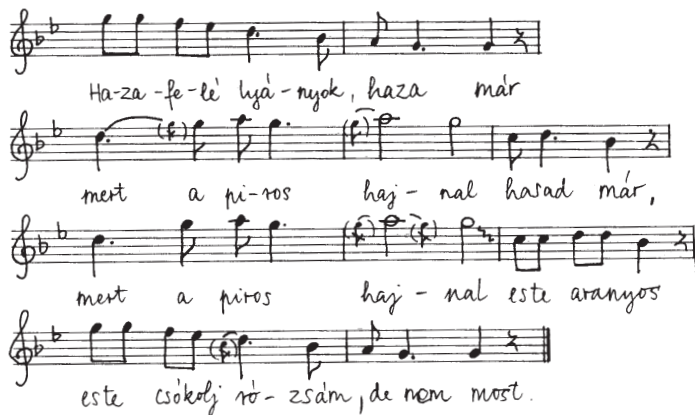 Ha-za-fe-lé lyá-nyok, haza már
mert a pi-ros haj-nal hasad már,
mert a piros haj-nal este aranyos
este csókolj ró-zsám, de nem most.